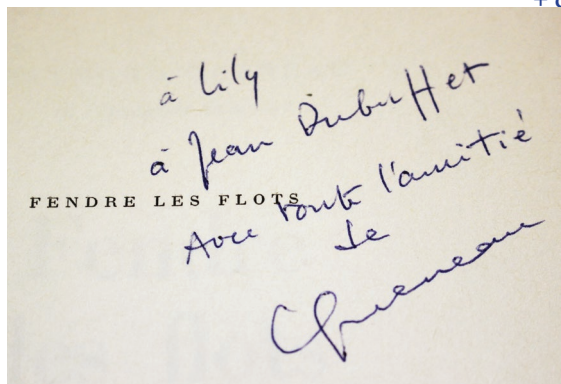 à Lily
à Jean Dubuffet
FENDRE LES FLOTS
Avec toute l'amitié
de
Queneau